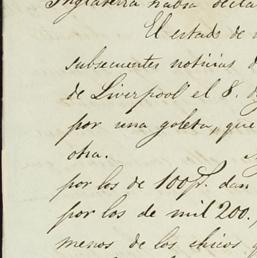 Inglaterra habia decla
El estado de
subsecuentes noticias d
de Liverpool el 8. d
por una goleta, que
otra.
por los de 100p. dan
por los de mil 200,
menos de los chicos q